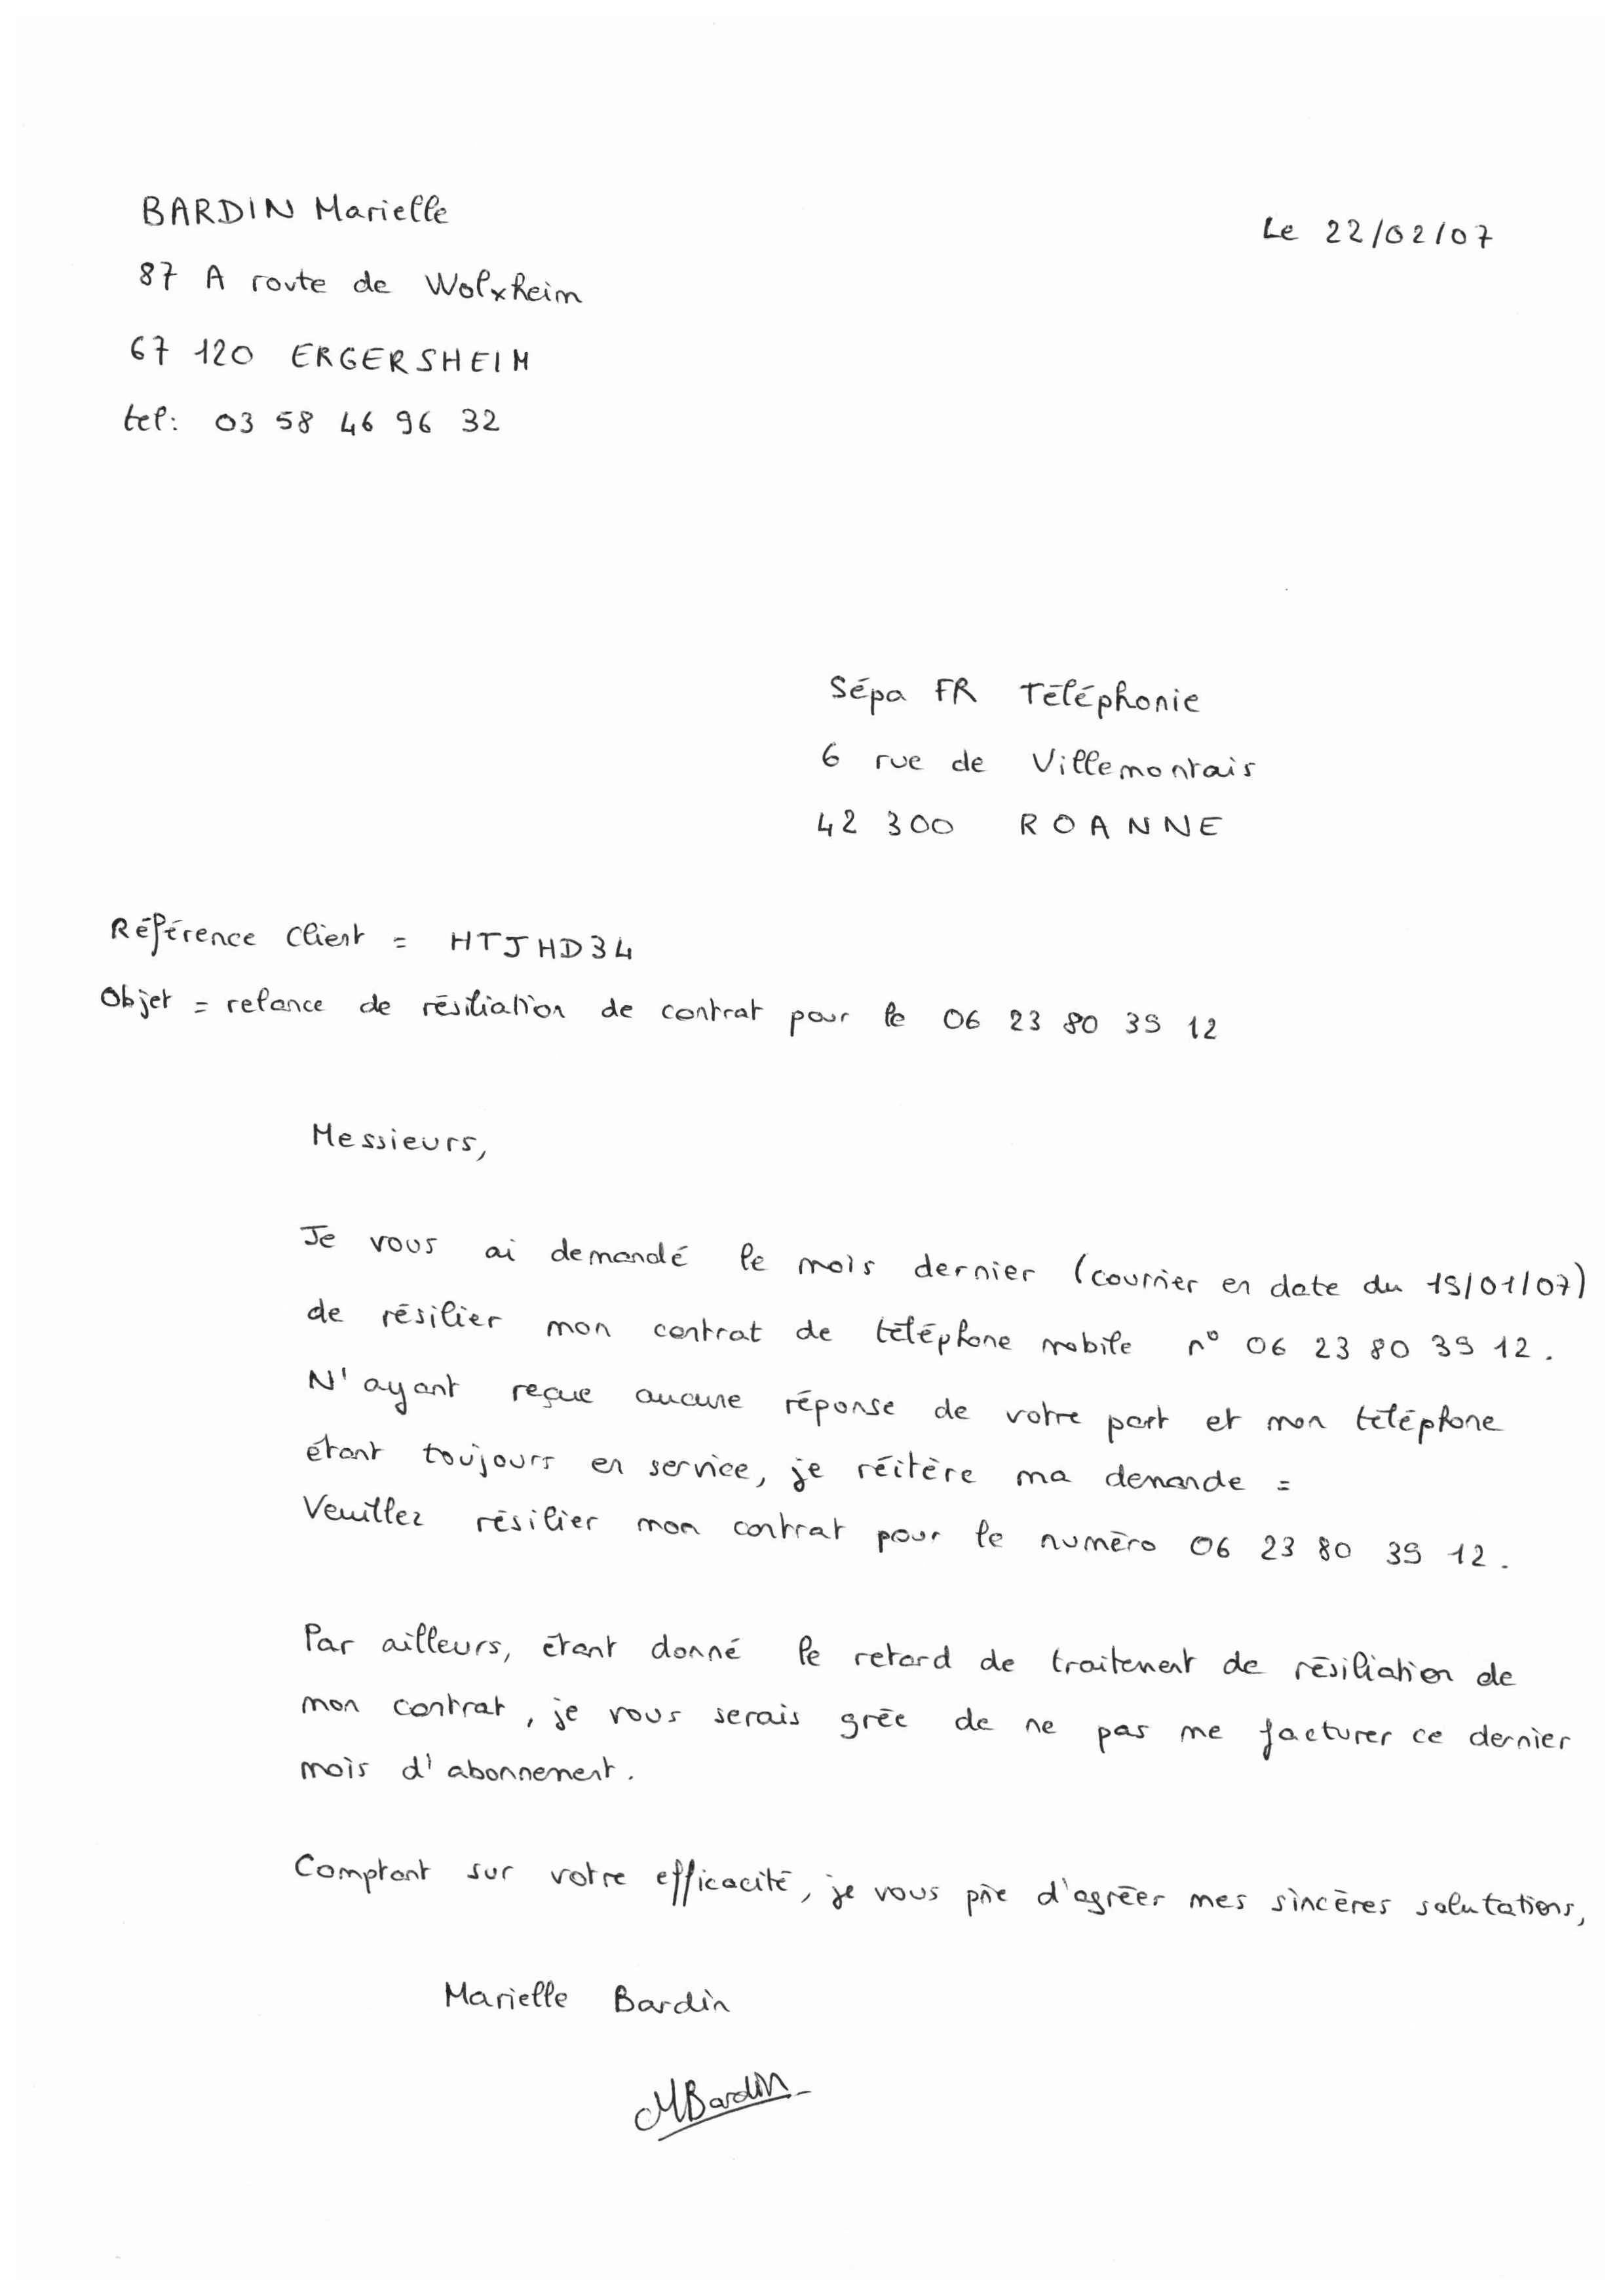 BARDIN Marielle
Le 22/02/07
87 A route de Wolxheim
67 120 ERGERSHEIM
tel: 03 58 46 96 32
Sépa FR Téléphonie
6 rue de Villemontais
42 300 ROANNE
Référence client = HTJHD34
Objet = relance de résiliation de contrat pour le 06 23 80 39 12
Messieurs,
Je vous ai demandé le mois dernier (courrier en date du 19/01/07)
de résilier mon contrat de téléphone mobile n° 06 23 80 39 12.
N'ayant reçue aucune réponse de votre part et mon téléphone
étant toujours en service, je réitère ma demande =
Veuillez résilier mon contrat pour le numéro 06 23 80 39 12.
Par ailleurs, étant donné le retard de traitement de résiliation de
mon contrat, je vous serais grée de ne pas me facturer ce dernier
mois d'abonnement.
Comptant sur votre efficacité, je vous prie d'agréer mes sincères salutations,
Marielle Bardin
MBardin